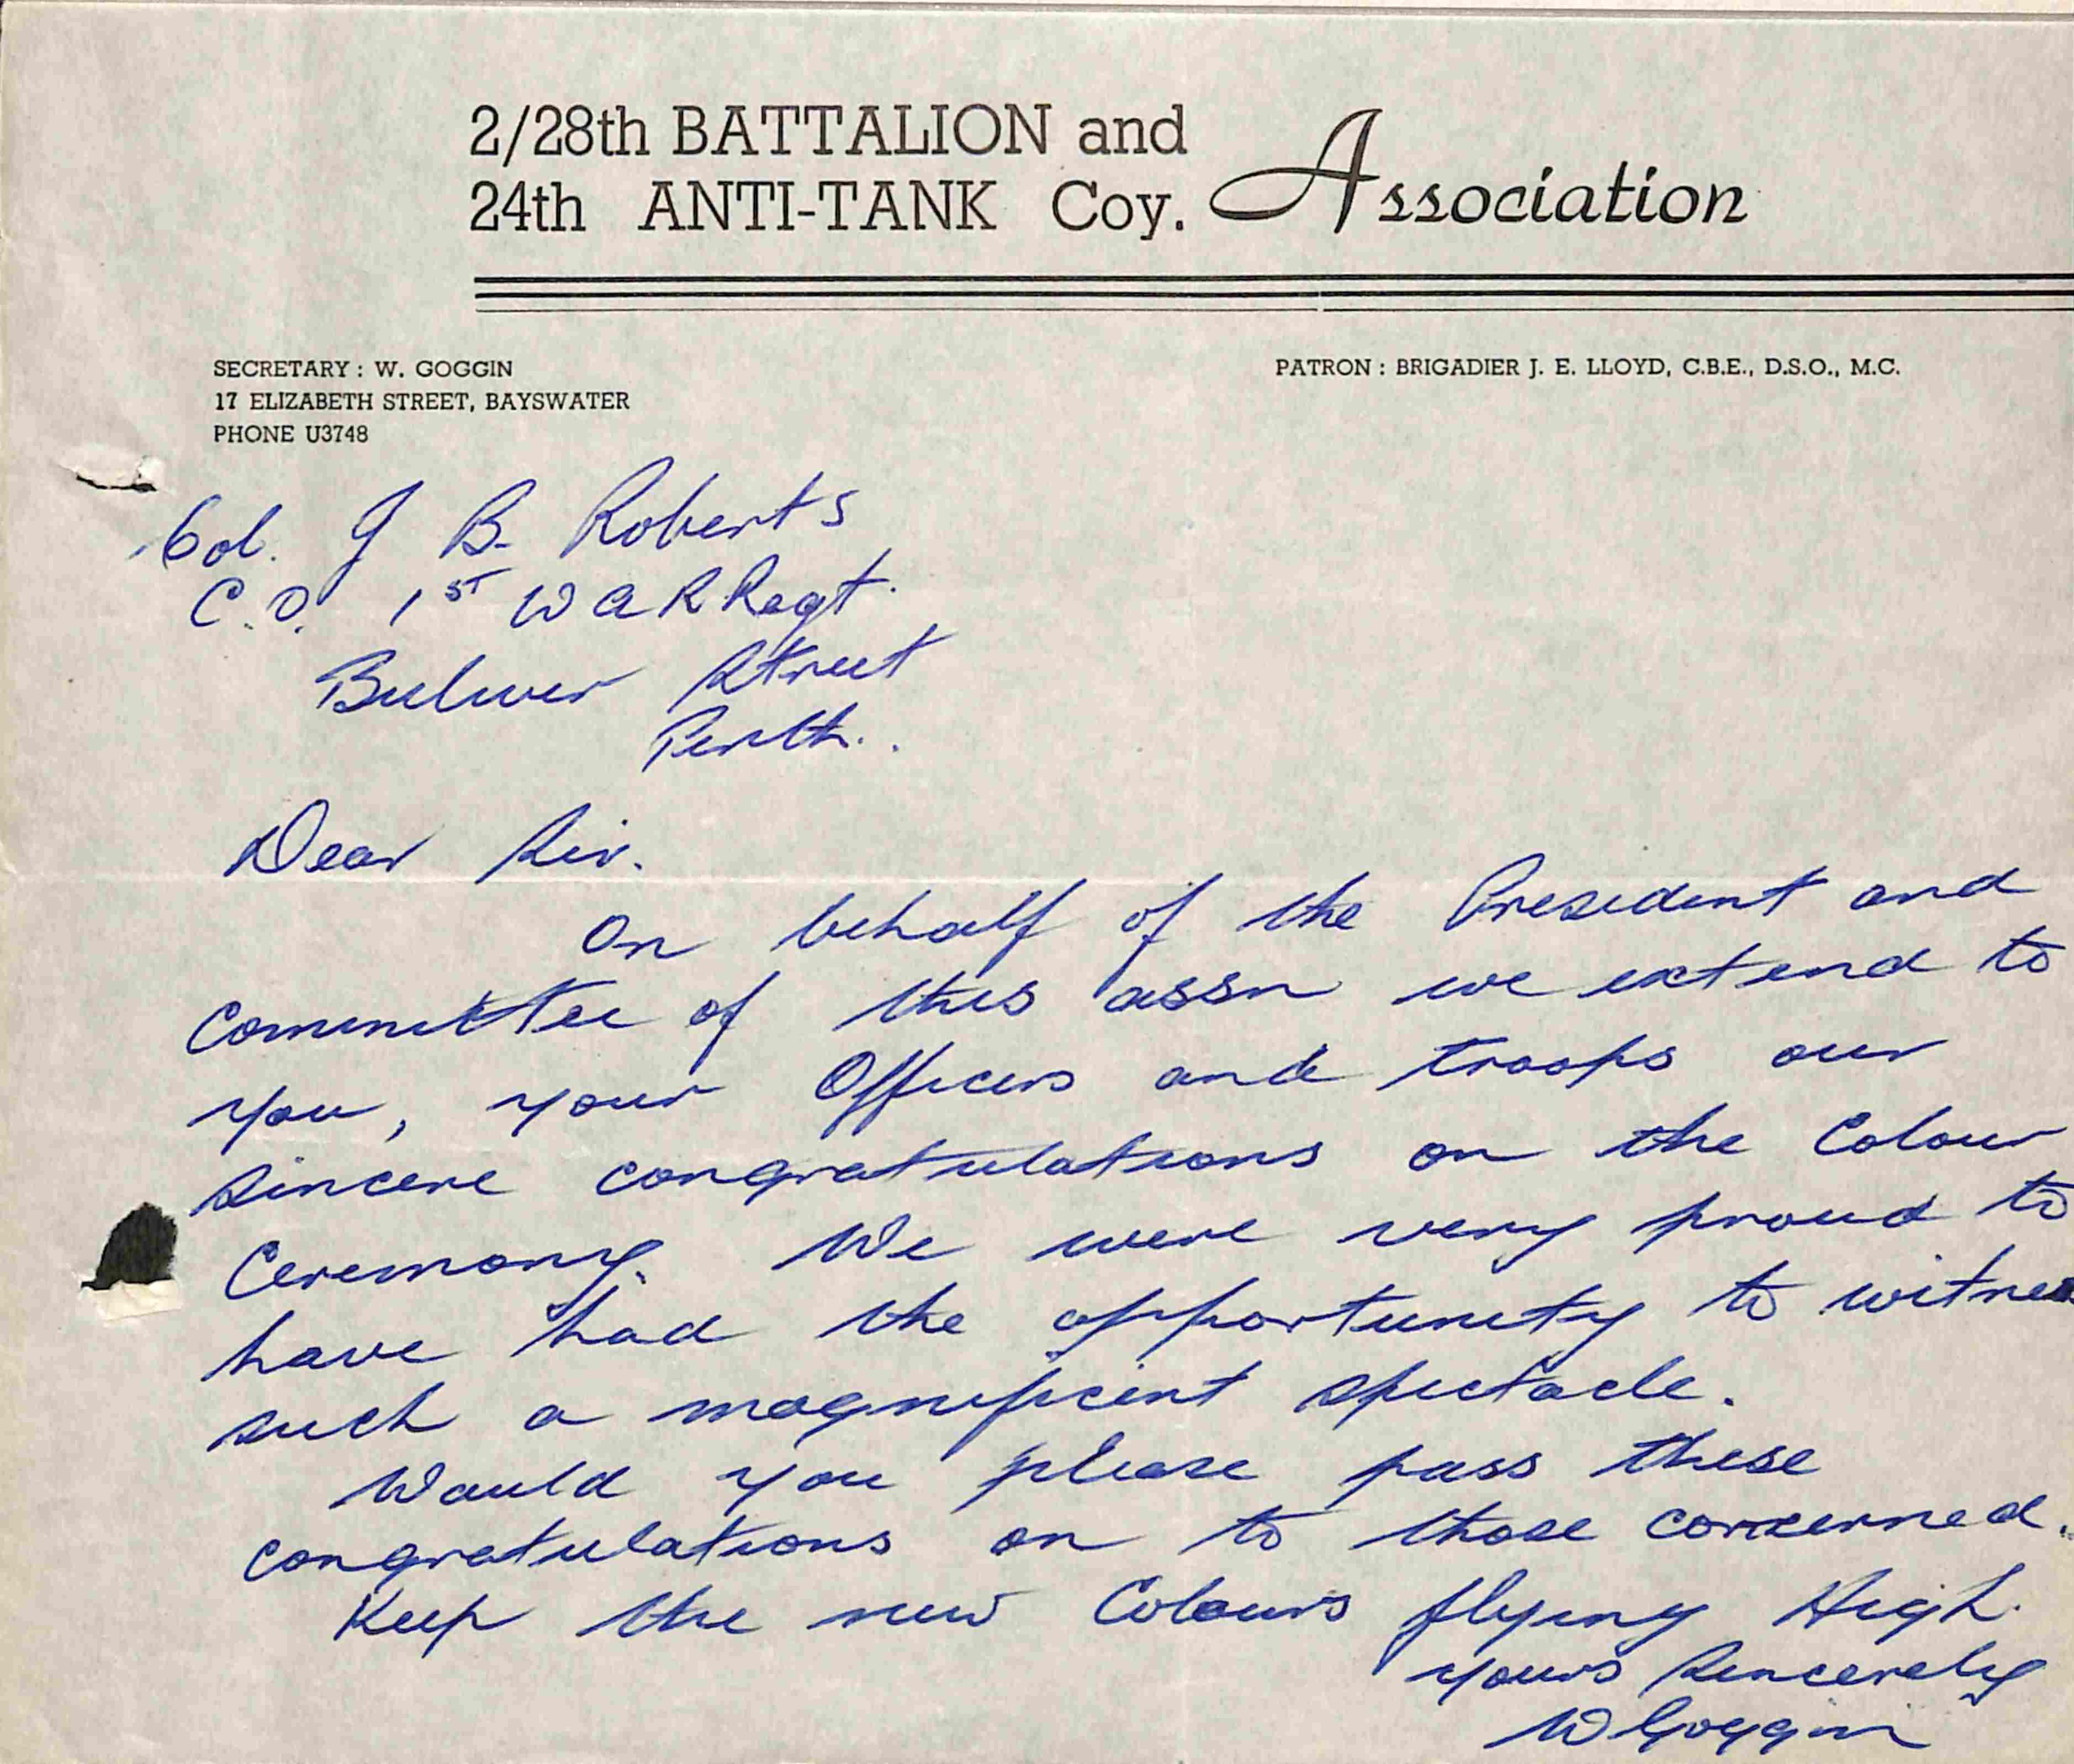 2/28th BATTALION and
24th ANTI-TANK Coy. Association
SECRETARY : W. GOGGIN
17 ELIZABETH STREET, BAYSWATER
PHONE U3748
PATRON : BRIGADIER J. E. LLOYD, C.B.E., D.S.O., M.C.
Col. J B. Roberts
C.O. 1ST W A R Regt.
Bulwer Street
Perth.
Dear Sir.
On behalf of the President and
Committee of this assn we extend to
you, your Officers and troops our
sincere congratulations on the Colour
Ceremony. We were very proud to
have had the opportunity to witness
such a magnificent spectacle.
Would you please pass these
congratulations on to those concerned.
Keep the new Colours flying High.
yours Sincerely
W Goggin